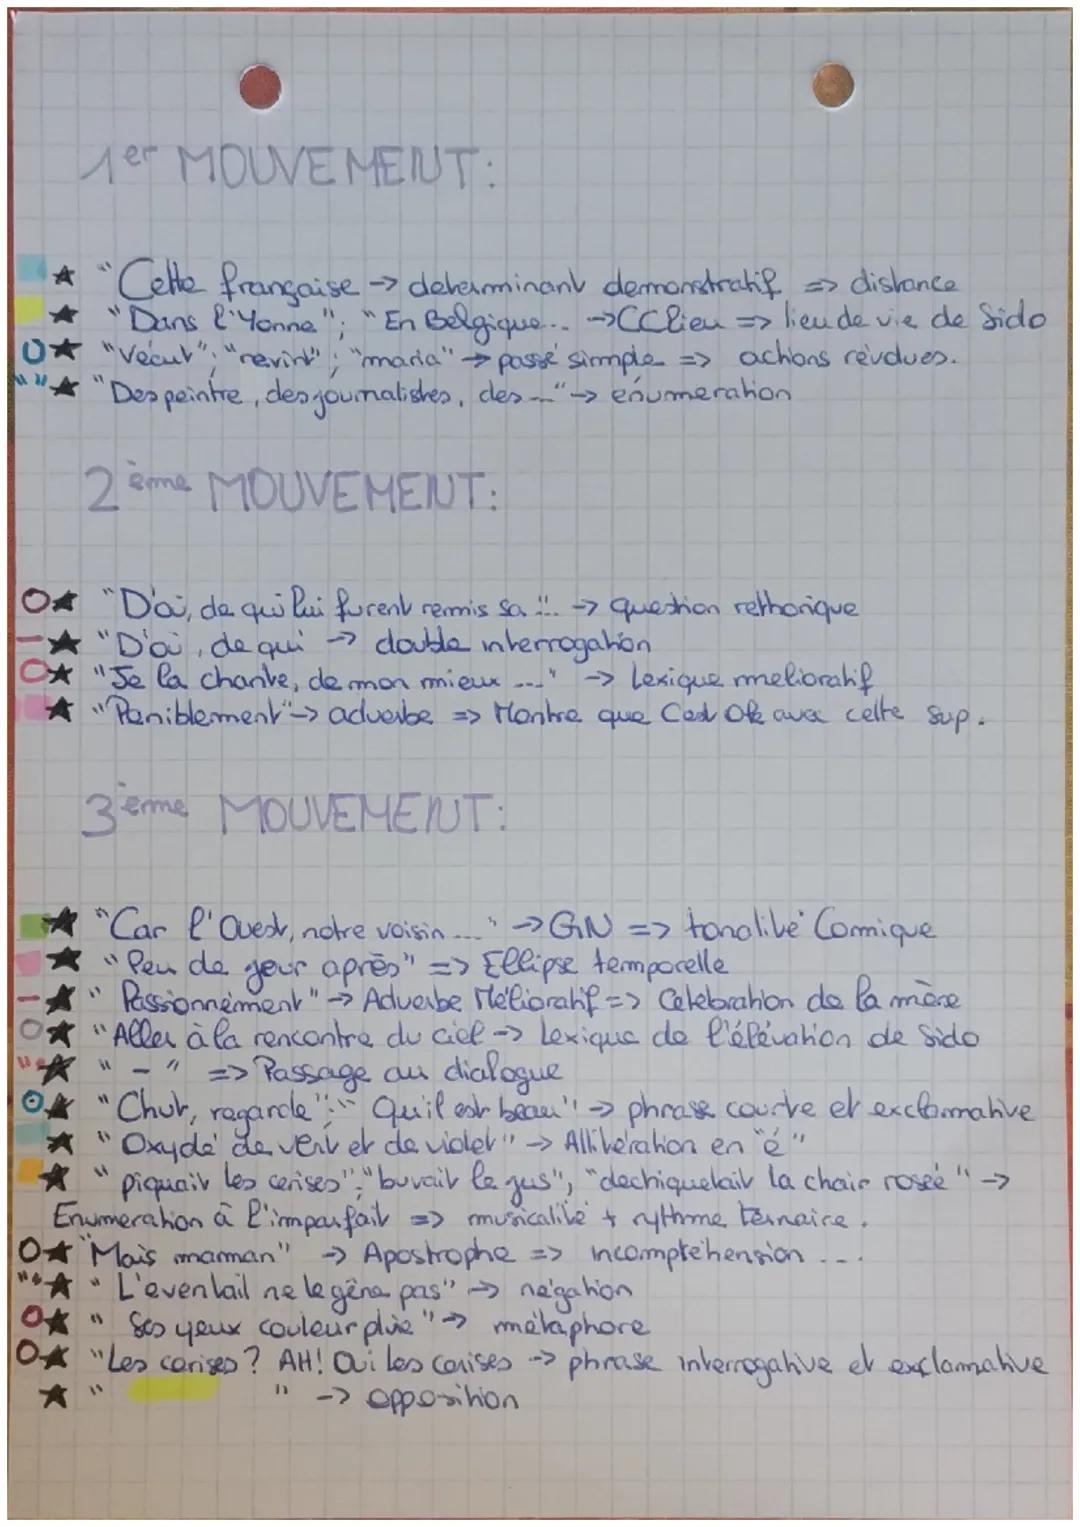 1er MOUVEMENT:
★ "Cette française -> determinant demonstratif => distance
★ "Dans l'Yonne"; "En Belgique... -> CC lieu => lieu de vie de Sido
★ "Vécut"; "revint"; "maria" -> passé simple => actions révolues.
★ "Des peintre, des journalistes, des ..." -> énumeration
2ème MOUVEMENT:
★ "D'où, de qui lui furent remis sa "... -> question rethorique
★ "D'où, de qui -> double interrogation
★ "Je la chante, de mon mieux ..." -> Lexique melioratif
★ "Paniblement" -> adverbe => Montre que C'est Ok avec cette sup.
3ème MOUVEMENT:
★ "Car l'Ouest, notre voisin ..." -> GN => tonalité Comique
★ "Peu de jour après" => Ellipse temporelle
★ "Passionnément" -> Adverbe Mélioratif => Célébration de la mère
★ "Aller à la rencontre du ciel -> Lexique de l'élévation de Sido
★ " - " => Passage au dialogue
★ "Chut, regarde"; "Qu'il est beau" -> phrase courte et exclammative
★ "Oxydé de vert et de violet" -> Allitération en "é"
★ "piquait les cerises"; "buvait le jus"; "dechiquetait la chair rosée" ->
Enumeration à l'imparfait => musicalité + rythme ternaire.
★ "Mais maman" -> Apostrophe => incompréhension ...
★ "L'eventail ne le gêne pas" -> négation
★ "Ses yeux couleur pluie" -> métaphore
★ "Les cerises? AH! Oui les cerises -> phrase interrogative et exclamative
★ " " -> opposition